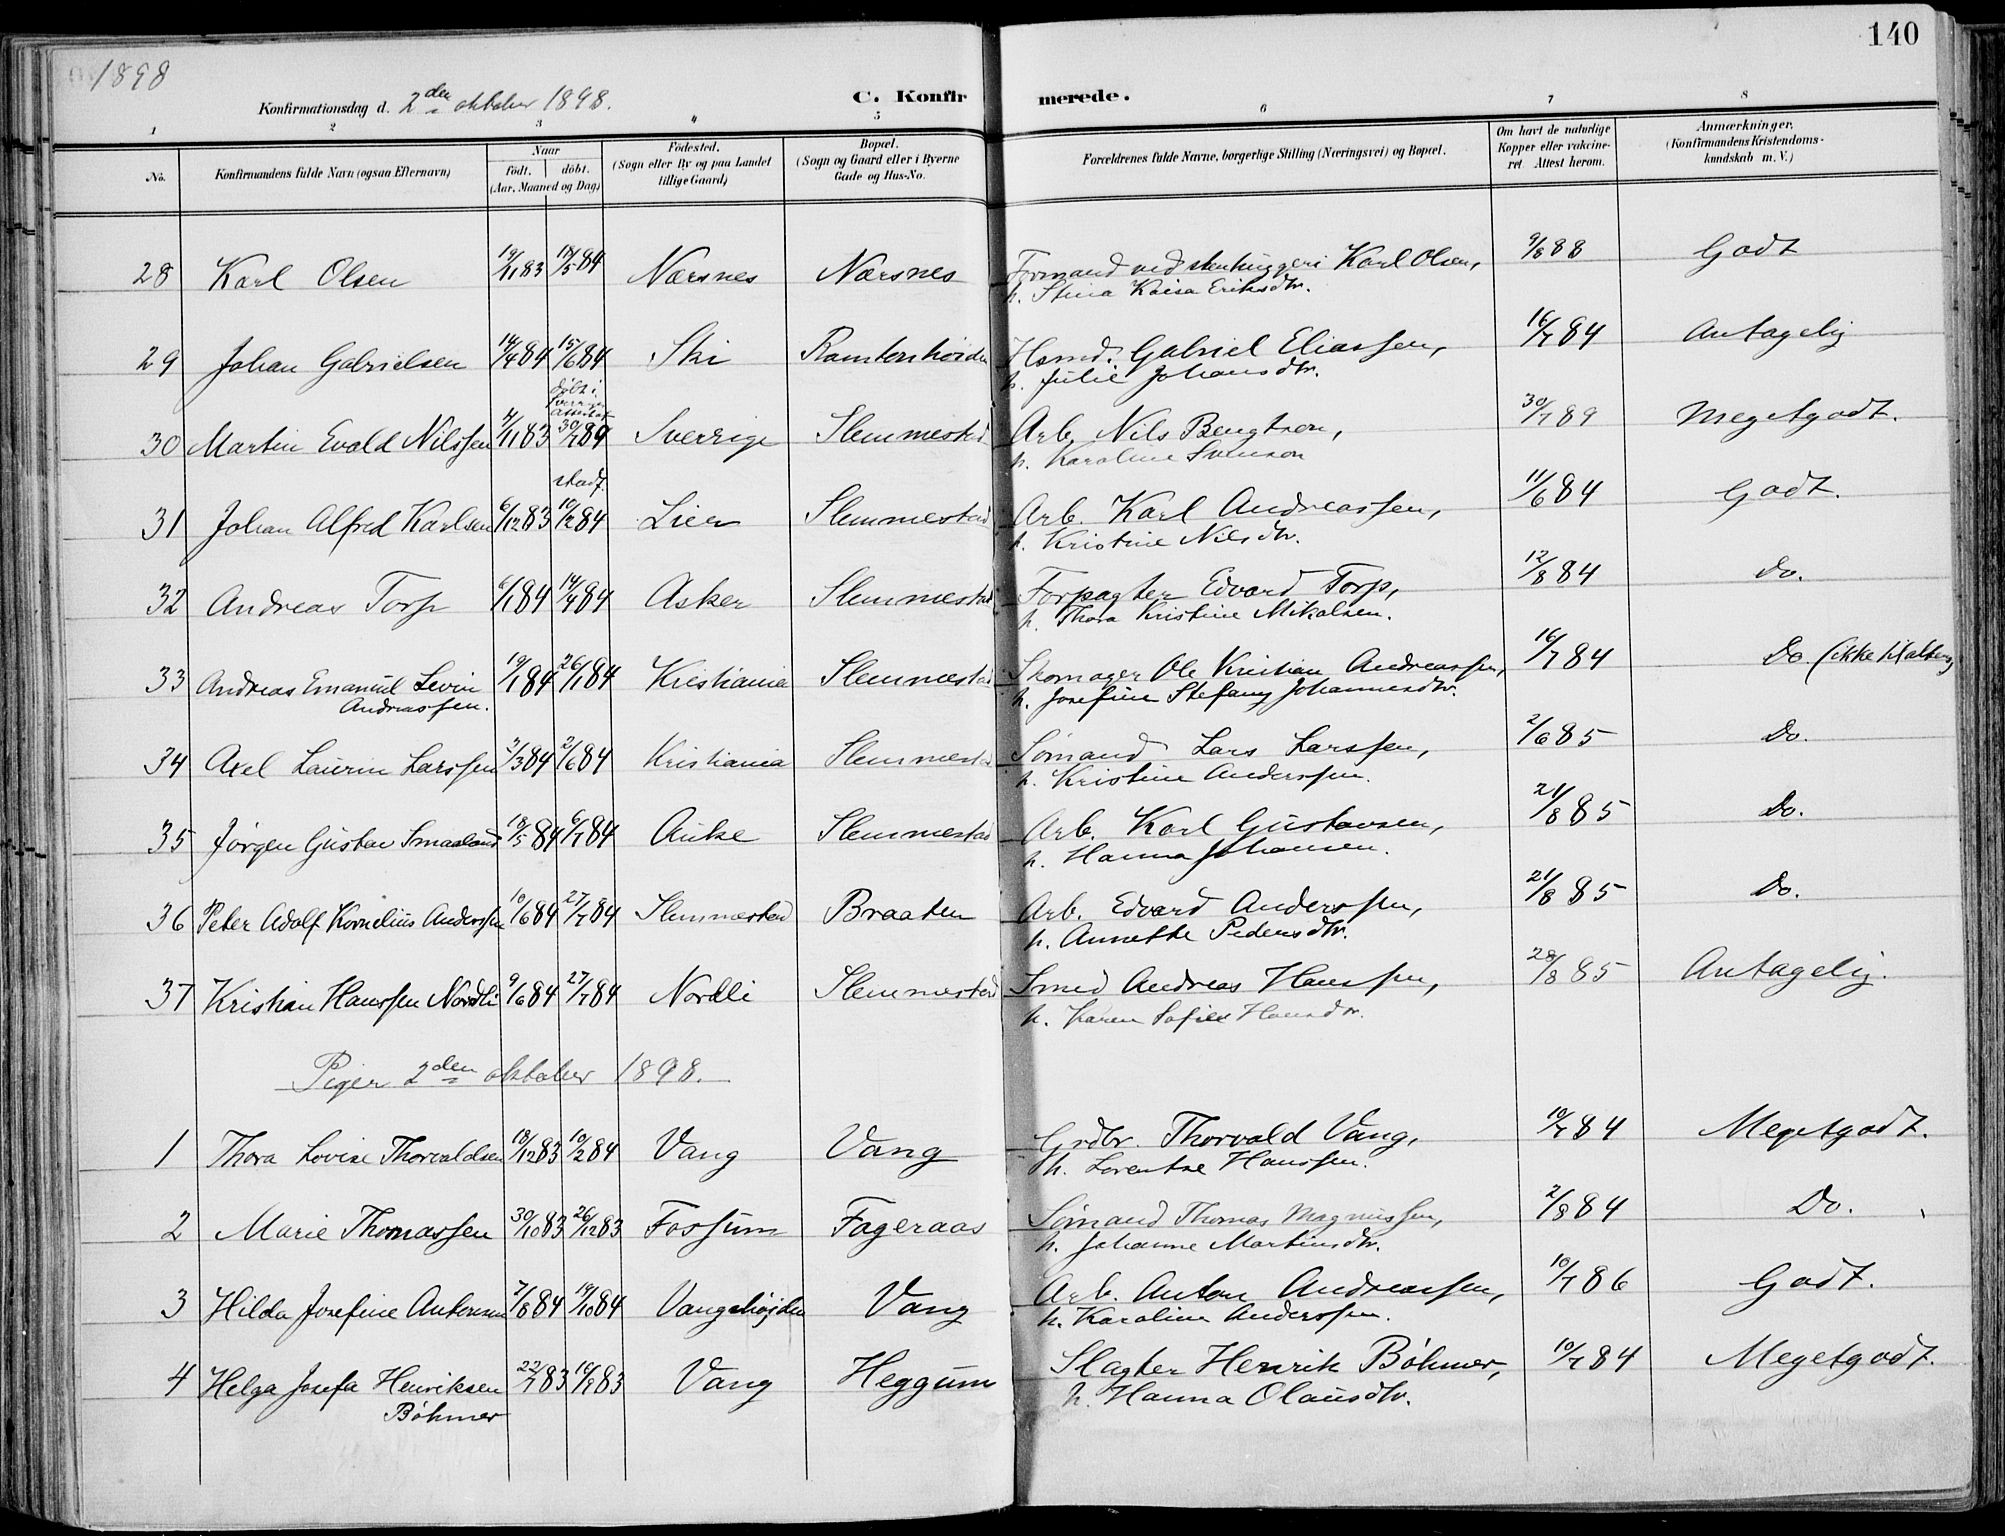 140
1898
Konfirmationsdag d. 2den oktober 1898.
C. Konfirmerede.
1 2 3 4 5 6 7 8
No.
Konfirmandens fulde Navn (ogsaa Efternavn)
Naar
födt. döbt.
(Aar, Maaned og Dag)
Födested.
(Sogn eller By og paa Landet
tillige Gaard)
Bopæl.
(Sogn og Gaard eller i Byerne
Gade og Hus-No.
Forældrenes fulde Navne, borgerlige Stilling (Næringsvei) og Bopæl.
Om havt de naturlige
Kopper eller vakcine-
ret. Attest herom.
Anmærkninger.
(Konfirmandens Kristendoms-
kundskab m. V.)
28 Karl Olsen 19/11 83 18/5 84 Nærsnes Nærsnes Formand ved stenhuggeri Karl Olsen, 9/8 88 Godt
h. Stina Kaisa Eriksdtr.
29 Johan Gabrielsen 14/4 84 15/6 84 Ski Ramtonhöiden Hsmd. Gabriel Eliassen, 16/7 84 Antagelig
h. Julie Johansdtr.
döbt i
Sverige
attest af
30 Martin Evald Nilssen 4/11 83 30/7 89 Sverrige Slemmestad Arb. Nils Bengtson, 30/7 89 Megetgodt.
h. Karoline Svenson
stadf.
31 Johan Alfred Karlsen 6/12 83 10/2 84 Lier Slemmestad Arb. Karl Andreassen, 11/6 84 Godt.
h. Kristine Nilsdtr.
32 Andreas Torp 6/1 84 14/4 84 Asker Slemmestad Forpagter Edvard Torp, 12/8 84 Do.
h. Thora Kristine Mikalsen.
33 Andreas Emanuel Levin 19/1 84 26/1 84 Kristiania Slemmestad Skomager Ole Kristian Andreassen, 16/7 84 Do (ikke tilalters)
Andreassen. h. Josefine Stefany Johannesdtr.
34 Axel Laurin Larssen 3/3 84 2/6 84 Kristiania Slemmestad Sömand Lars Larssen, 2/6 85 Do.
h. Kristine Anderssen.
35 Jörgen Gustav Smaaland 18/5 84 6/7 84 Auke Slemmestad Arb. Karl Gustavsen, 21/8 85 Do.
h. Hanna Johansen.
36 Peter Adolf Kornelius Anderssen 10/6 84 27/7 84 Slemmestad Braaten Arb. Edvard Anderssen, 21/8 85 Do.
h. Annette Pedersdtr.
37 Kristian Hanssen Nordli 9/6 84 27/7 84 Nordli Slemmestad Smed Andreas Hanssen, 28/8 85 Antagelig.
h. Karen Sofie Hansdtr.
Piger 2den oktober 1898.
1 Thora Lovise Thorvaldsen 18/12 83 10/2 84 Vang Vang Grdbr. Thorvald Vang, 10/7 84 Megetgodt.
h. Lorentse Hanssen.
2 Marie Thomassen 30/10 83 26/12 83 Fossum Fageraas Sömand Thomas Magnussen, 2/8 84 Do.
h. Johanne Martinsdtr.
3 Hilda Josefine Antonsen 7/8 84 19/10 84 Vangshöjden Vang Arb. Anton Andreassen, 10/7 86 Godt.
h. Karoline Anderssen.
4 Helga Josefa Henriksen 22/7 83 16/9 83 Vang Heggum Slagter Henrik Böhmer, 10/7 84 Megetgodt.
Böhmer h. Hanna Olausdtr.